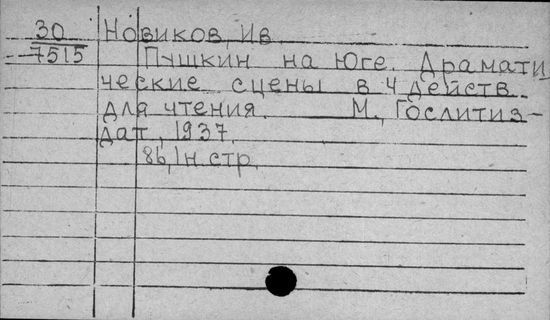 30 Новиков, Ив.
7515 Пушкин на Юге. Драмати
ческие сцены в 4 действ.
для чтения. М., Гослитиз-
дат, 1937.
86, 1 н. стр.